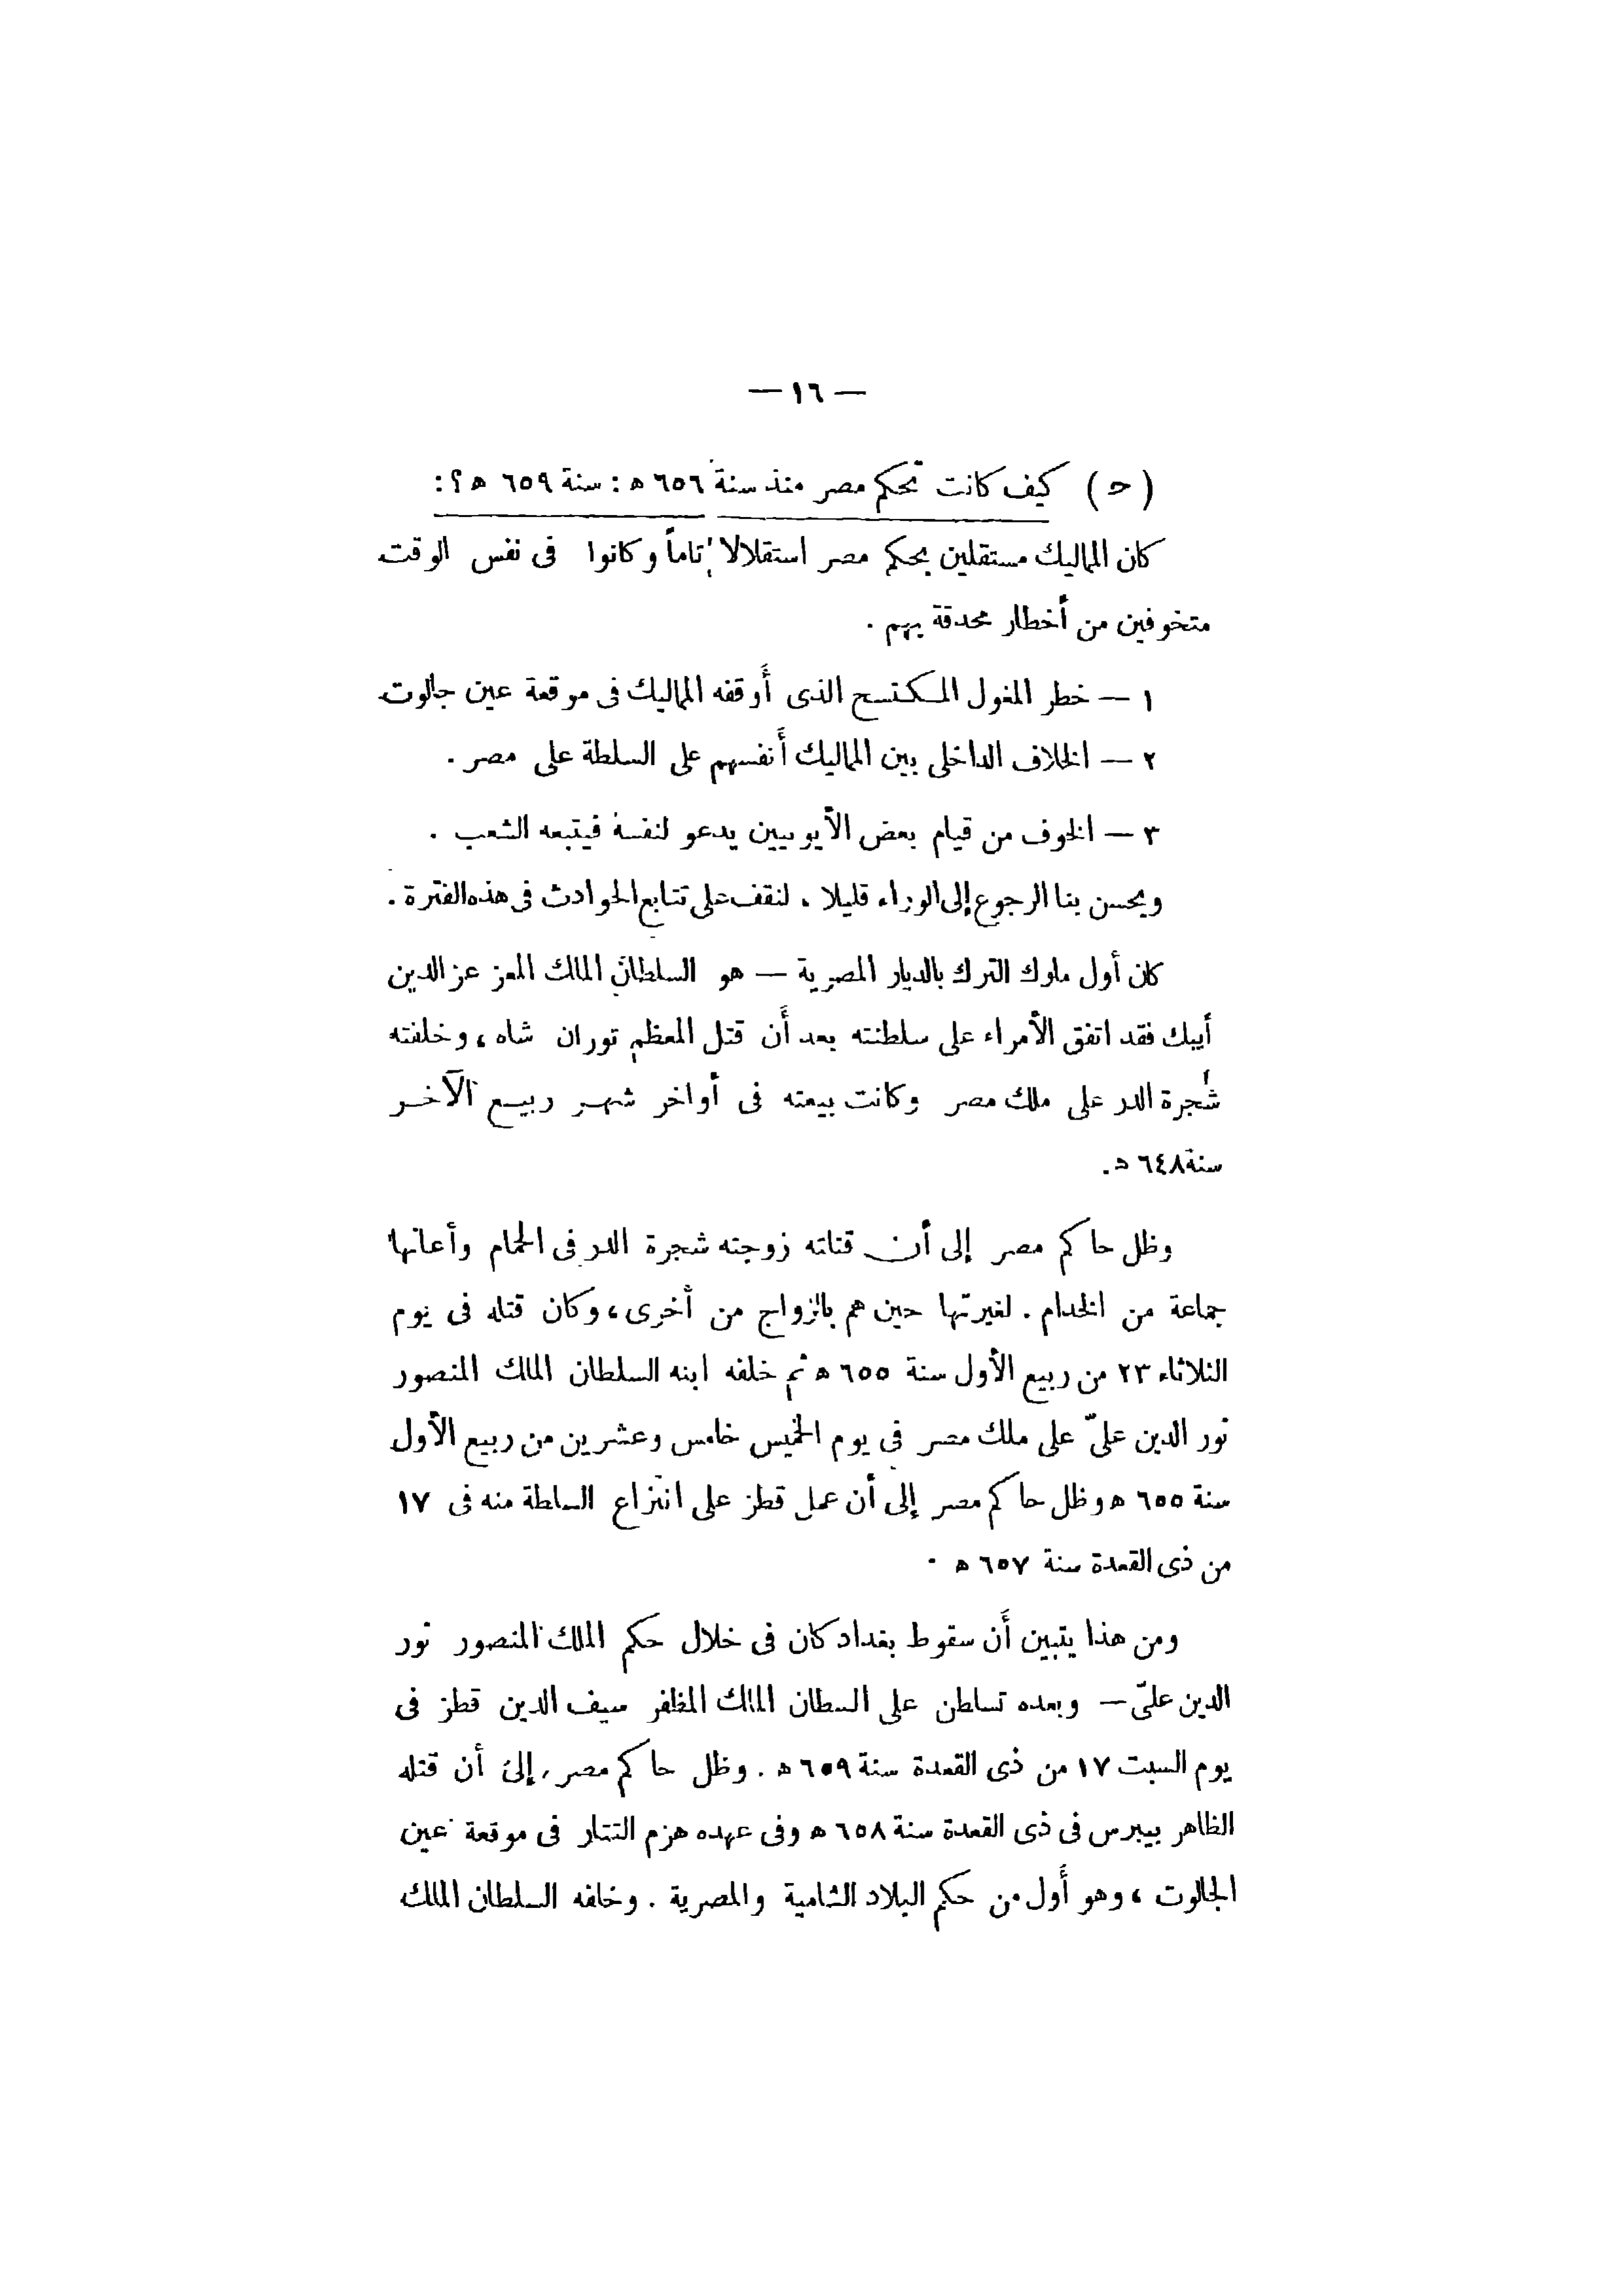 — ١٦ —
( ح ) كيف كانت تحكم مصر منذ سنة ٦٥٦ ه : سنة ٦٥٩ ه ؟ :
كان المماليك مستقلين بحكم مصر استقلالا تاماً وكانوا فى نفس الوقت
متخوفين من أخطار محدقة بهم .
١ — خطر المغول المكتسح الذى أوقفه المماليك فى موقعة عين جالوت
٢ — الخلاف الداخلى بين المماليك أنفسهم على السلطة على مصر .
٣ — الخوف من قيام بعض الأيوبيين يدعو لنفسه فيتبعه الشعب .
ويحسن بنا الرجوع إلى الوراء قليلا ، لنقف على تتابع الحوادث فى هذه الفترة .
كان أول ملوك الترك بالديار المصرية — هو السلطان الملك المعز عز الدين
أيبك فقد اتفق الأمراء على سلطنته بعد أن قتل المعظم توران شاه ، وخلفته
شجرة الدر على ملك مصر وكانت بيعته فى أواخر شهر ربيع الآخر
سنة ٦٤٨ ه .
وظل حاكم مصر إلى أن قتلته زوجته شجرة الدر فى الحمام وأعانها
جماعة من الخدام . لغيرتها حين هم بالزواج من أخرى ، وكان قتله فى يوم
الثلاثاء ٢٣ من ربيع الأول سنة ٦٥٥ ه ثم خلفه ابنه السلطان الملك المنصور
نور الدين علىّ على ملك مصر فى يوم الخميس خامس وعشرين من ربيع الأول
سنة ٦٥٥ ه وظل حاكم مصر إلى أن عمل قطز على انتزاع السلطة منه فى ١٧
من ذى القعدة سنة ٦٥٧ ه .
ومن هذا يتبين أن سقوط بغداد كان فى خلال حكم الملك المنصور نور
الدين علىّ — وبعده تسلطن على السطان الملك المظفر سيف الدين قطز فى
يوم السبت ١٧ من ذى القعدة سنة ٦٥٩ ه . وظل حاكم مصر ، إلى أن قتله
الظاهر بيبرس فى ذى القعدة سنة ٦٥٨ ه وفى عهده هزم التتار فى موقعة عين
الجالوت ، وهو أول من حكم البلاد الشامية والمصرية . وخلفه السلطان الملك